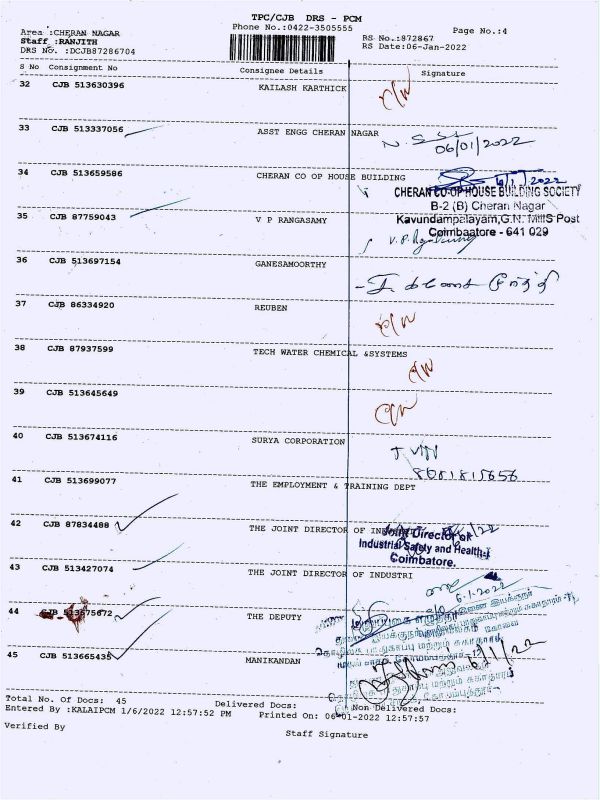 TPC/CJB DRS - PCM
Area :CHERAN NAGAR
Phone No.:0422-3505555
Page No.:4
Staff :RANJITH
RS No.:872867
DRS No. :DCJB87286704
RS Date:06-Jan-2022
S No Consignment No Consignee Details Signature
32 CJB 513630396 KAILASH KARTHICK
33 CJB 513337056 ASST ENGG CHERAN NAGAR
06/01/2022
34 CJB 513659586 CHERAN CO OP HOUSE BUILDING
6/1/2022
CHERAN CO-OP HOUSE BUILDING SOCIETY
B-2 (B) Cheran Nagar
Kavundampalayam, G.N. Mills Post
Coimbaatore - 641 029
35 CJB 87759043 V P RANGASAMY
36 CJB 513697154 GANESAMOORTHY
37 CJB 86334920 REUBEN
38 CJB 87937599 TECH WATER CHEMICAL &SYSTEMS
39 CJB 513645649
40 CJB 513674116 SURYA CORPORATION
41 CJB 513699077 THE EMPLOYMENT & TRAINING DEPT
42 CJB 87834488 THE JOINT DIRECTOR OF
Joint Director of
Industrial Safety and Health-I
Coimbatore.
43 CJB 513427074 THE JOINT DIRECTOR OF INDUSTRI
6.1.2022
44 CJB 513675672 THE DEPUTY
45 CJB 513665435 MANIKANDAN
6/1/22
Total No. Of Docs: 45 Delivered Docs: Non Delivered Docs:
Entered By :KALAIPCM 1/6/2022 12:57:52 PM Printed On: 06-01-2022 12:57:57
Verified By
Staff Signature